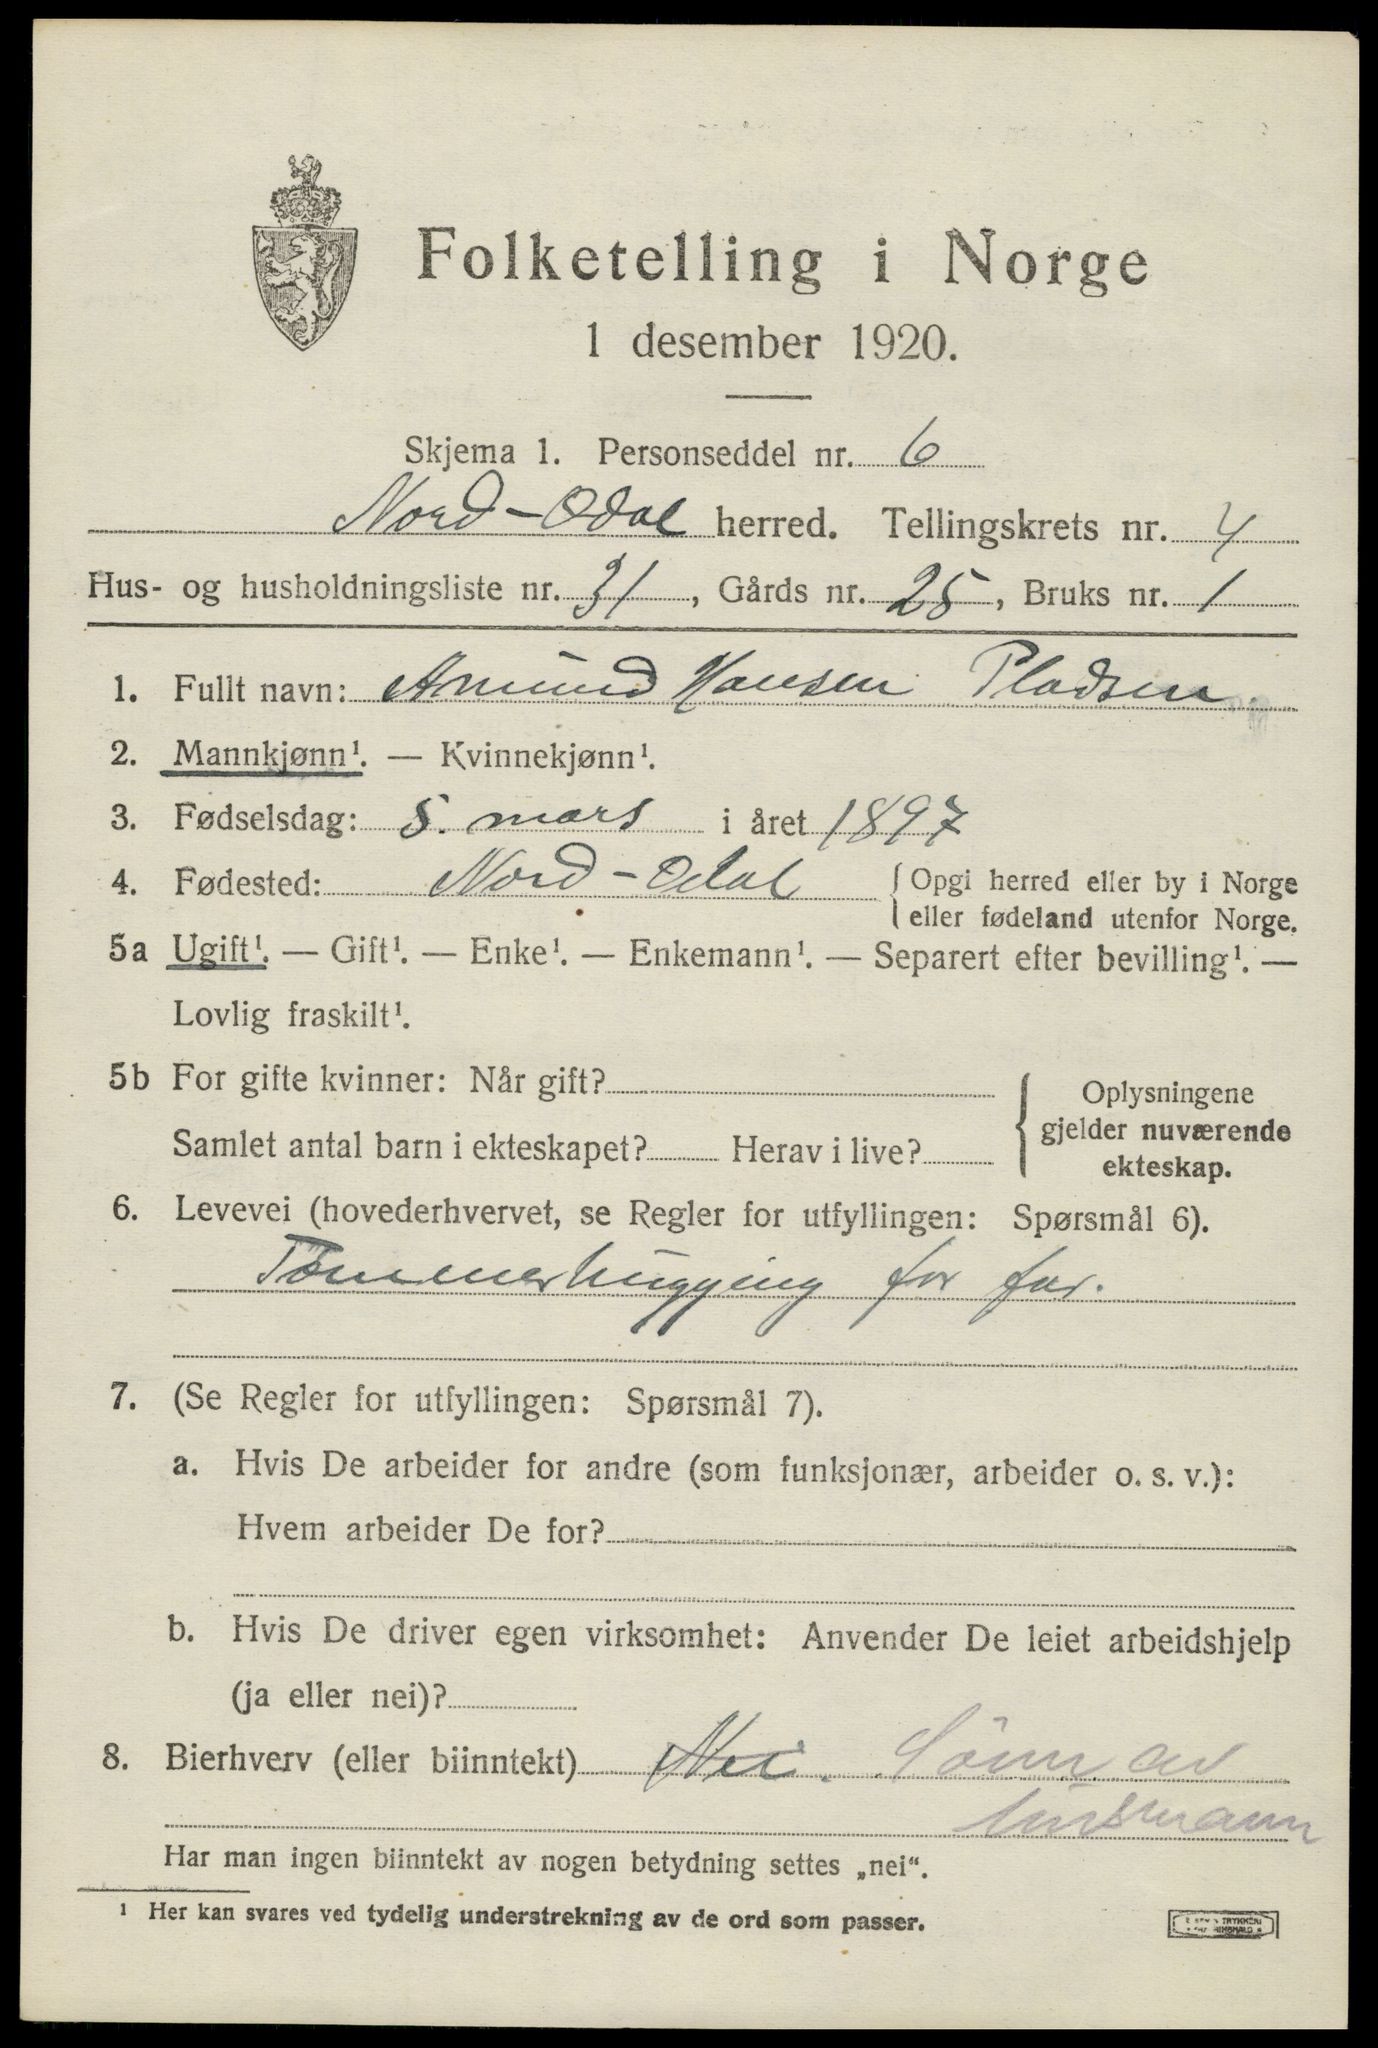 Folketelling i Norge
1 desember 1920.
Skjema 1. Personseddel nr. 6
Nord-Odal herred. Tellingskrets nr. 4
Hus- og husholdningsliste nr. 31, Gårds nr. 25, Bruks nr. 1
1. Fullt navn: Amund Hansen Pladsen
2. Mannkjønn¹. — Kvinnekjønn¹.
3. Fødselsdag: 5. mars i året 1897
4. Fødested: Nord-Odal { Opgi herred eller by i Norge
eller fødeland utenfor Norge.
5a Ugift¹. — Gift¹. — Enke¹. — Enkemann¹. — Separert efter bevilling¹. —
Lovlig fraskilt¹.
5b For gifte kvinner: Når gift?
Samlet antal barn i ekteskapet? Herav i live?
Oplysningene
gjelder nuværende
ekteskap.
6. Levevei (hovederhvervet, se Regler for utfyllingen: Spørsmål 6).
Tømmerhugging for far.
7. (Se Regler for utfyllingen: Spørsmål 7).
a. Hvis De arbeider for andre (som funksjonær, arbeider o. s. v.):
Hvem arbeider De for?
b. Hvis De driver egen virksomhet: Anvender De leiet arbeidshjelp
(ja eller nei)?
8. Bierhverv (eller biinntekt) Nei. Sønn av
husmann
Har man ingen biinntekt av nogen betydning settes „nei“.
¹ Her kan svares ved tydelig understrekning av de ord som passer.